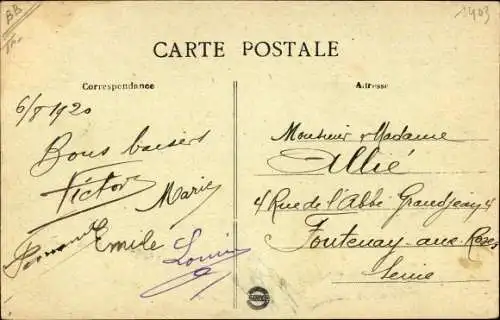 BB
1403
CARTE POSTALE
Correspondance
Adresse
6/8 1920
Bons baisers
Victor
Marie
Fernand
Emile
Louis
Monsieur & Madame
Allié
4 Rue de l'Abbé Grandjean 4
Fontenay-aux-Roses
Seine